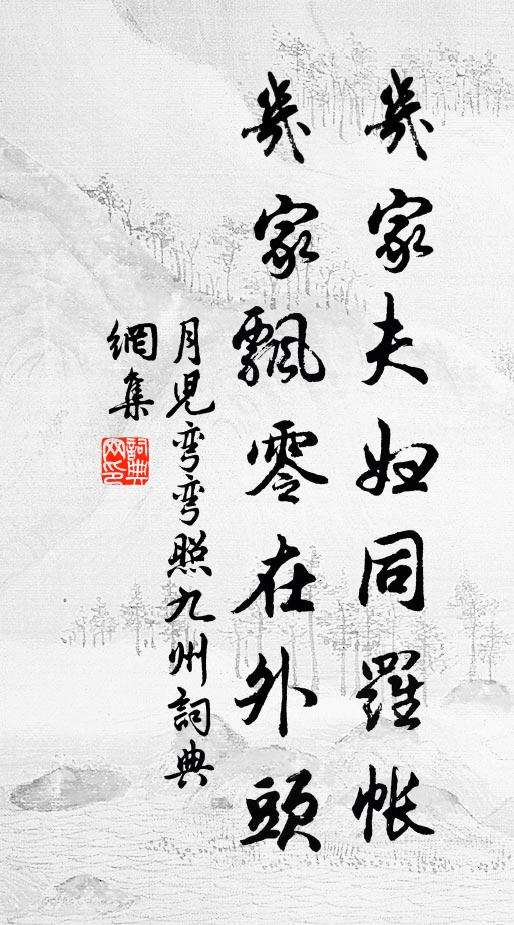 幾家夫婦同羅帳
幾家飄零在外頭
月兒彎彎照九州詞典
網集
詞典
网印